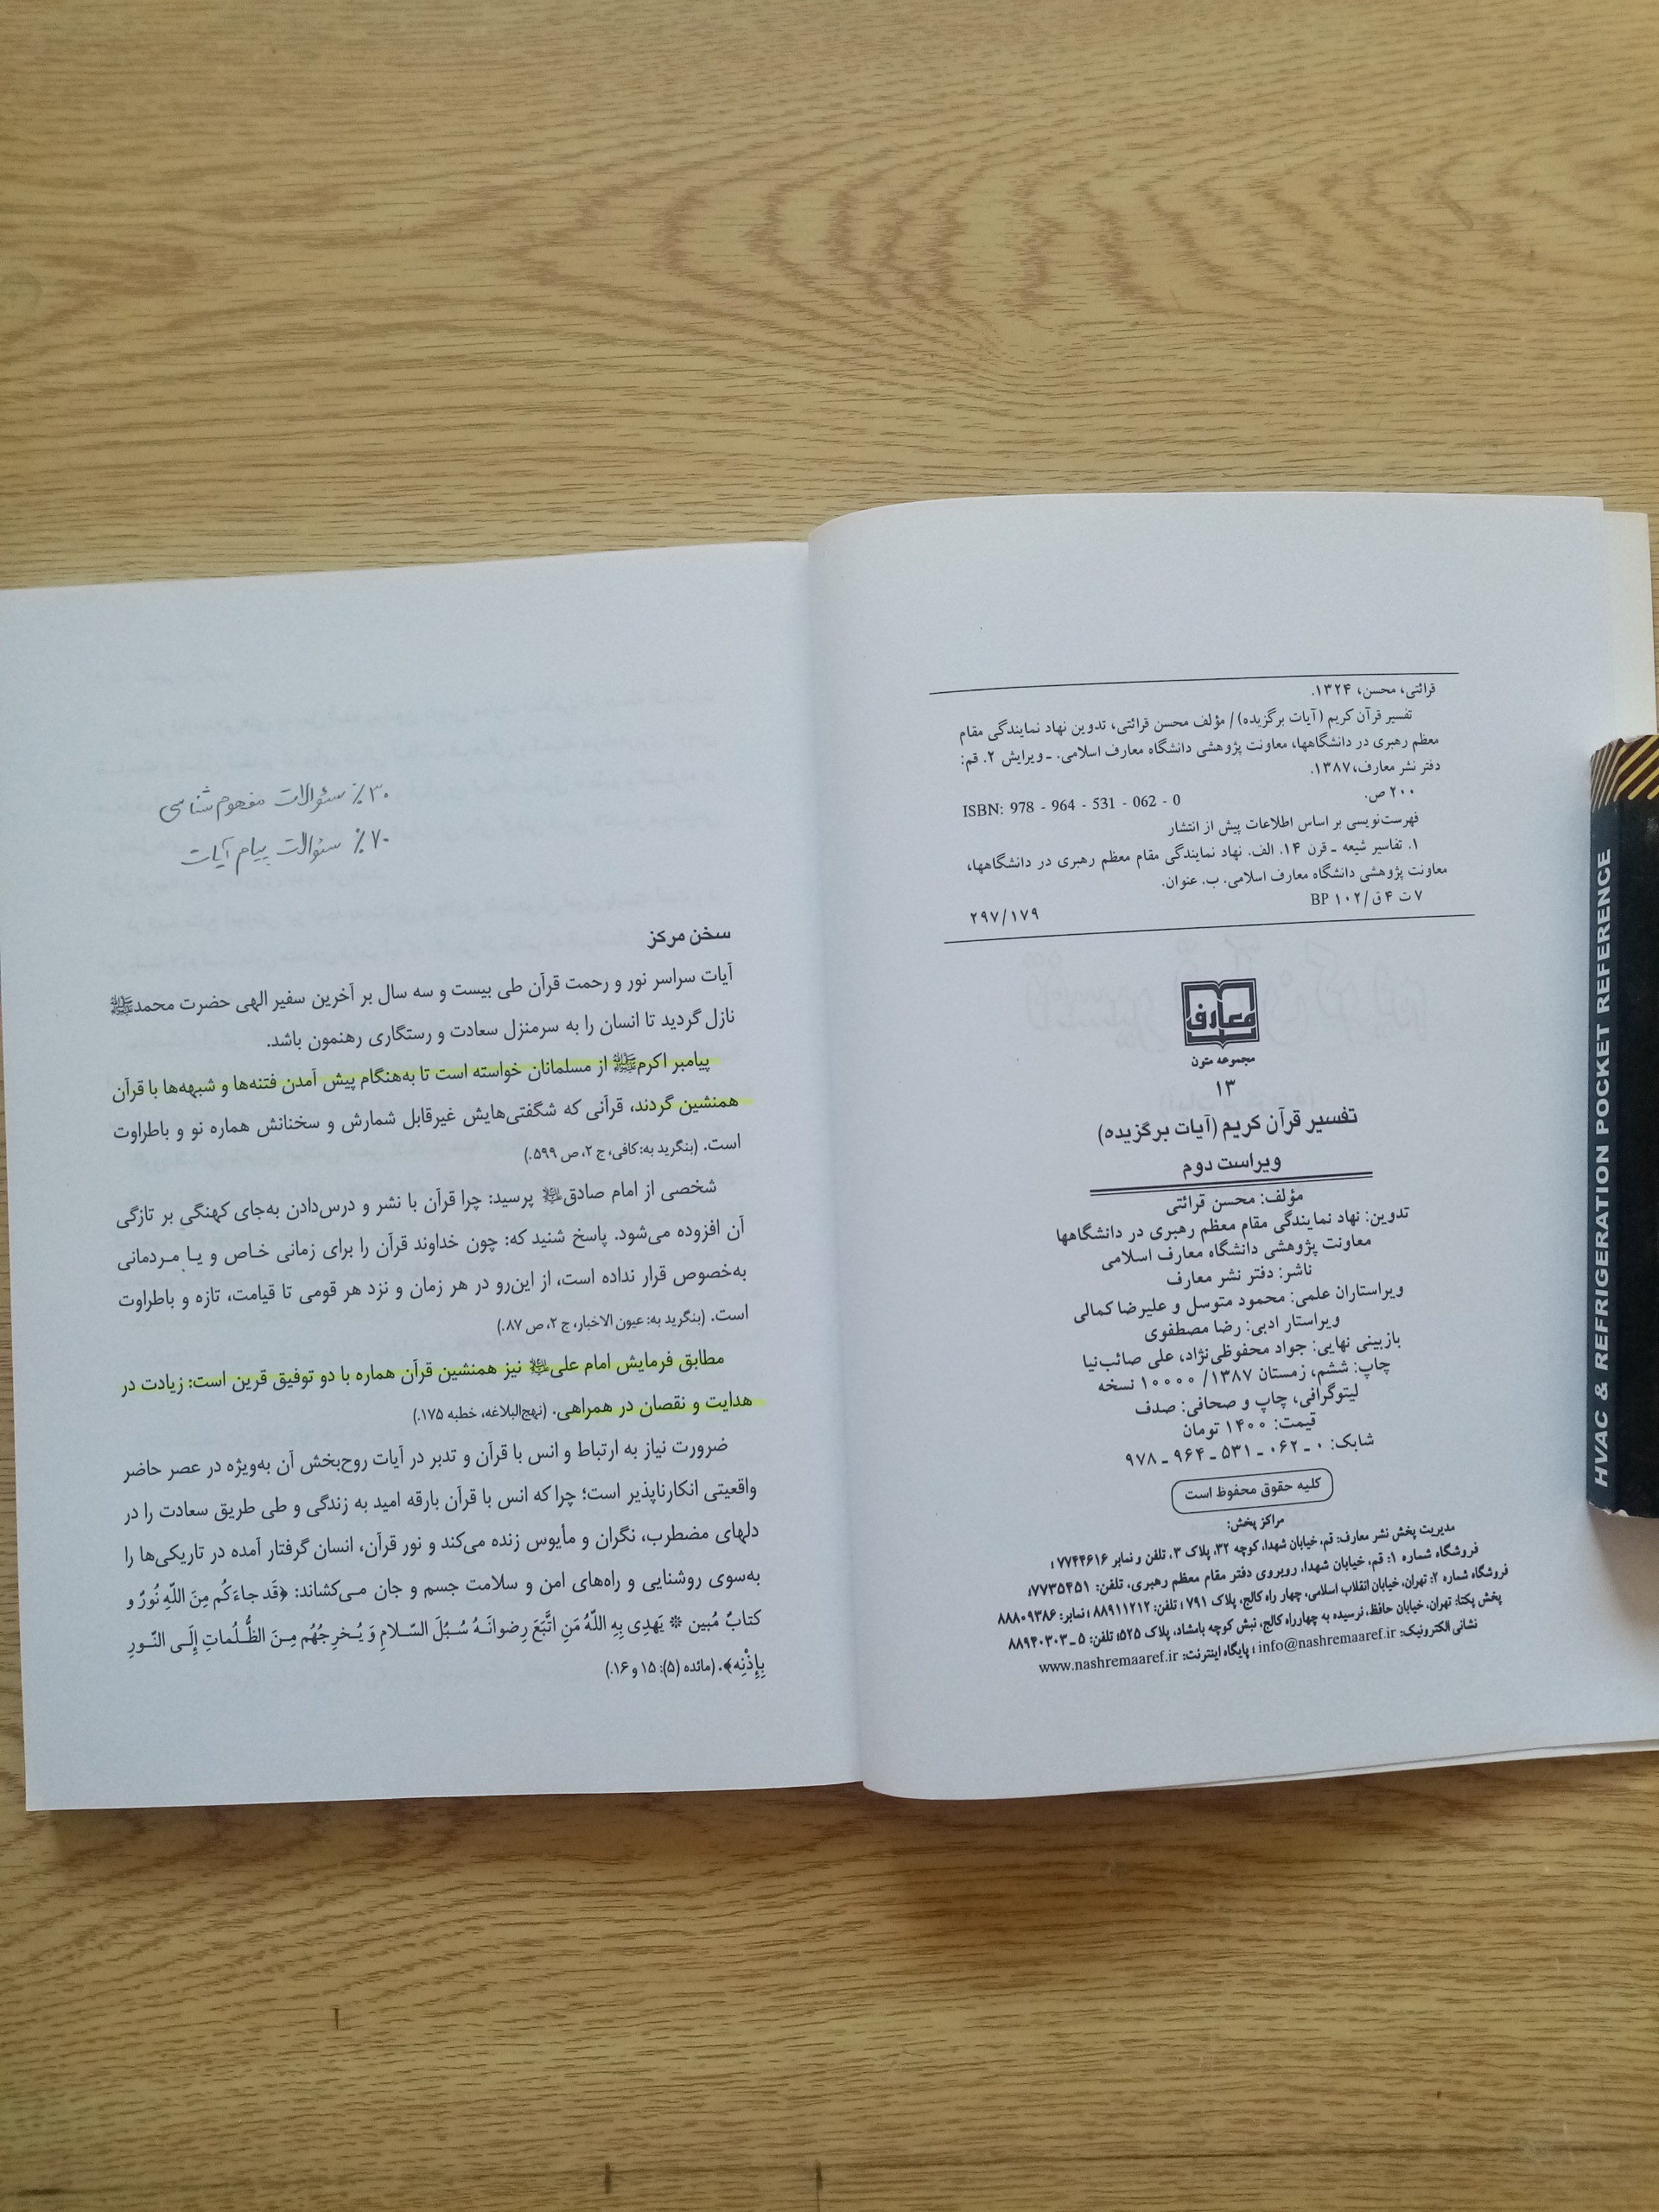 قرائتی، محسن، ۱۳۲۴.
تفسیر قرآن کریم (آیات برگزیده) / مؤلف محسن قرائتی، تدوین نهاد نمایندگی مقام
معظم رهبری در دانشگاهها، معاونت پژوهشی دانشگاه معارف اسلامی. ـ ویرایش ۲. قم:
دفتر نشر معارف، ۱۳۸۷.
۲۰۰ ص. ISBN: 978 - 964 - 531 - 062 - 0
فهرست‌نویسی بر اساس اطلاعات پیش از انتشار
۱. تفاسیر شیعه ـ قرن ۱۴. الف. نهاد نمایندگی مقام معظم رهبری در دانشگاهها،
معاونت پژوهشی دانشگاه معارف اسلامی. ب. عنوان.
۷ ت ۴ ق / BP ۱۰۲
۲۹۷/۱۷۹
معارف
مجموعه متون
۱۳
تفسیر قرآن کریم (آیات برگزیده)
ویراست دوم
مؤلف: محسن قرائتی
تدوین: نهاد نمایندگی مقام معظم رهبری در دانشگاهها
معاونت پژوهشی دانشگاه معارف اسلامی
ناشر: دفتر نشر معارف
ویراستاران علمی: محمود متوسل و علیرضا کمالی
ویراستار ادبی: رضا مصطفوی
بازبینی نهایی: جواد محفوظی‌نژاد، علی صائب‌نیا
چاپ: ششم، زمستان ۱۳۸۷/ ۱۰۰۰۰ نسخه
لیتوگرافی، چاپ و صحافی: صدف
قیمت: ۱۴۰۰ تومان
شابک: ۰ ـ ۰۶۲ ـ ۵۳۱ ـ ۹۶۴ ـ ۹۷۸
کلیه حقوق محفوظ است
مراکز پخش:
مدیریت پخش نشر معارف: قم، خیابان شهدا، کوچه ۳۲، پلاک ۳، تلفن و نمابر ۷۷۴۴۶۱۶ ؛
فروشگاه شماره ۱: قم، خیابان شهدا، روبروی دفتر مقام معظم رهبری، تلفن: ۷۷۳۵۴۵۱؛
فروشگاه شماره ۲: تهران، خیابان انقلاب اسلامی، چهار راه کالج، پلاک ۷۹۱ ؛ تلفن: ۸۸۹۱۱۲۱۲ ؛ نمابر: ۸۸۸۰۹۳۸۶
پخش پکتا: تهران، خیابان حافظ، نرسیده به چهارراه کالج، نبش کوچه بامشاد، پلاک ۵۲۵؛ تلفن: ۵ ـ ۸۸۹۴۰۳۰۳
نشانی الکترونیک: info@nashremaaref.ir ؛ پایگاه اینترنت: www.nashremaaref.ir
۳۰٪ سئوالات مفهوم شناسی
۷۰٪ سئوالات پیام آیات
سخن مرکز
آیات سراسر نور و رحمت قرآن طی بیست و سه سال بر آخرین سفیر الهی حضرت محمدﷺ
نازل گردید تا انسان را به سرمنزل سعادت و رستگاری رهنمون باشد.
پیامبر اکرمﷺ از مسلمانان خواسته است تا به‌هنگام پیش آمدن فتنه‌ها و شبهه‌ها با قرآن
همنشین گردند، قرآنی که شگفتی‌هایش غیرقابل شمارش و سخنانش هماره نو و باطراوت
است. (بنگرید به: کافی، ج ۲، ص ۵۹۹.)
شخصی از امام صادق؏ پرسید: چرا قرآن با نشر و درس‌دادن به‌جای کهنگی بر تازگی
آن افزوده می‌شود. پاسخ شنید که: چون خداوند قرآن را برای زمانی خاص و یا مردمانی
به‌خصوص قرار نداده است، از این‌رو در هر زمان و نزد هر قومی تا قیامت، تازه و باطراوت
است. (بنگرید به: عیون الاخبار، ج ۲، ص ۸۷.)
مطابق فرمایش امام علی؏ نیز همنشین قرآن هماره با دو توفیق قرین است: زیادت در
هدایت و نقصان در همراهی. (نهج‌البلاغه، خطبه ۱۷۵.)
ضرورت نیاز به ارتباط و انس با قرآن و تدبر در آیات روح‌بخش آن به‌ویژه در عصر حاضر
واقعیتی انکارناپذیر است؛ چرا که انس با قرآن بارقه امید به زندگی و طی طریق سعادت را در
دلهای مضطرب، نگران و مأیوس زنده می‌کند و نور قرآن، انسان گرفتار آمده در تاریکی‌ها را
به‌سوی روشنایی و راه‌های امن و سلامت جسم و جان می‌کشاند: ﴿قَد جاءَكُم مِنَ اللّهِ نُورٌ و
كتابٌ مُبين * يَهدِى بِهِ اللّهُ مَنِ اتَّبَعَ رِضوانَهُ سُبُلَ السَّلامِ وَ يُخرِجُهُم مِنَ الظُّلُماتِ إِلَى النّورِ
بِإِذْنِه﴾. (مائده (۵): ۱۵ و ۱۶.)
HVAC & REFRIGERATION POCKET REFERENCE